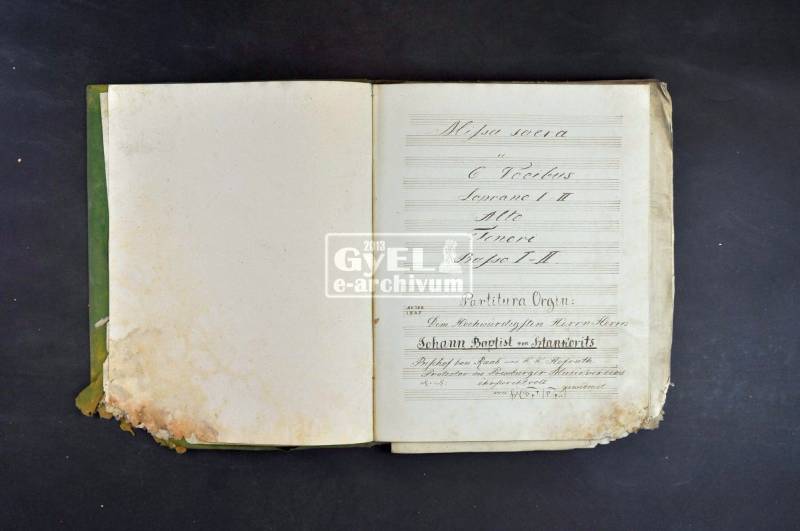 Missa sacra
a
6 Vocibus
Soprano I - II
Alto
Tenore
Basso I - II.
2013
GyEL
e-archivum
Partitura Orgin:
Dem Hochwürdigsten Herrn Herrn
Johann Baptist von Stankovits
Bischof von Raab und K. K. Hofrath
Protector des Pressburger Musikvereins
ehrfurchtsvoll gewidmet
von